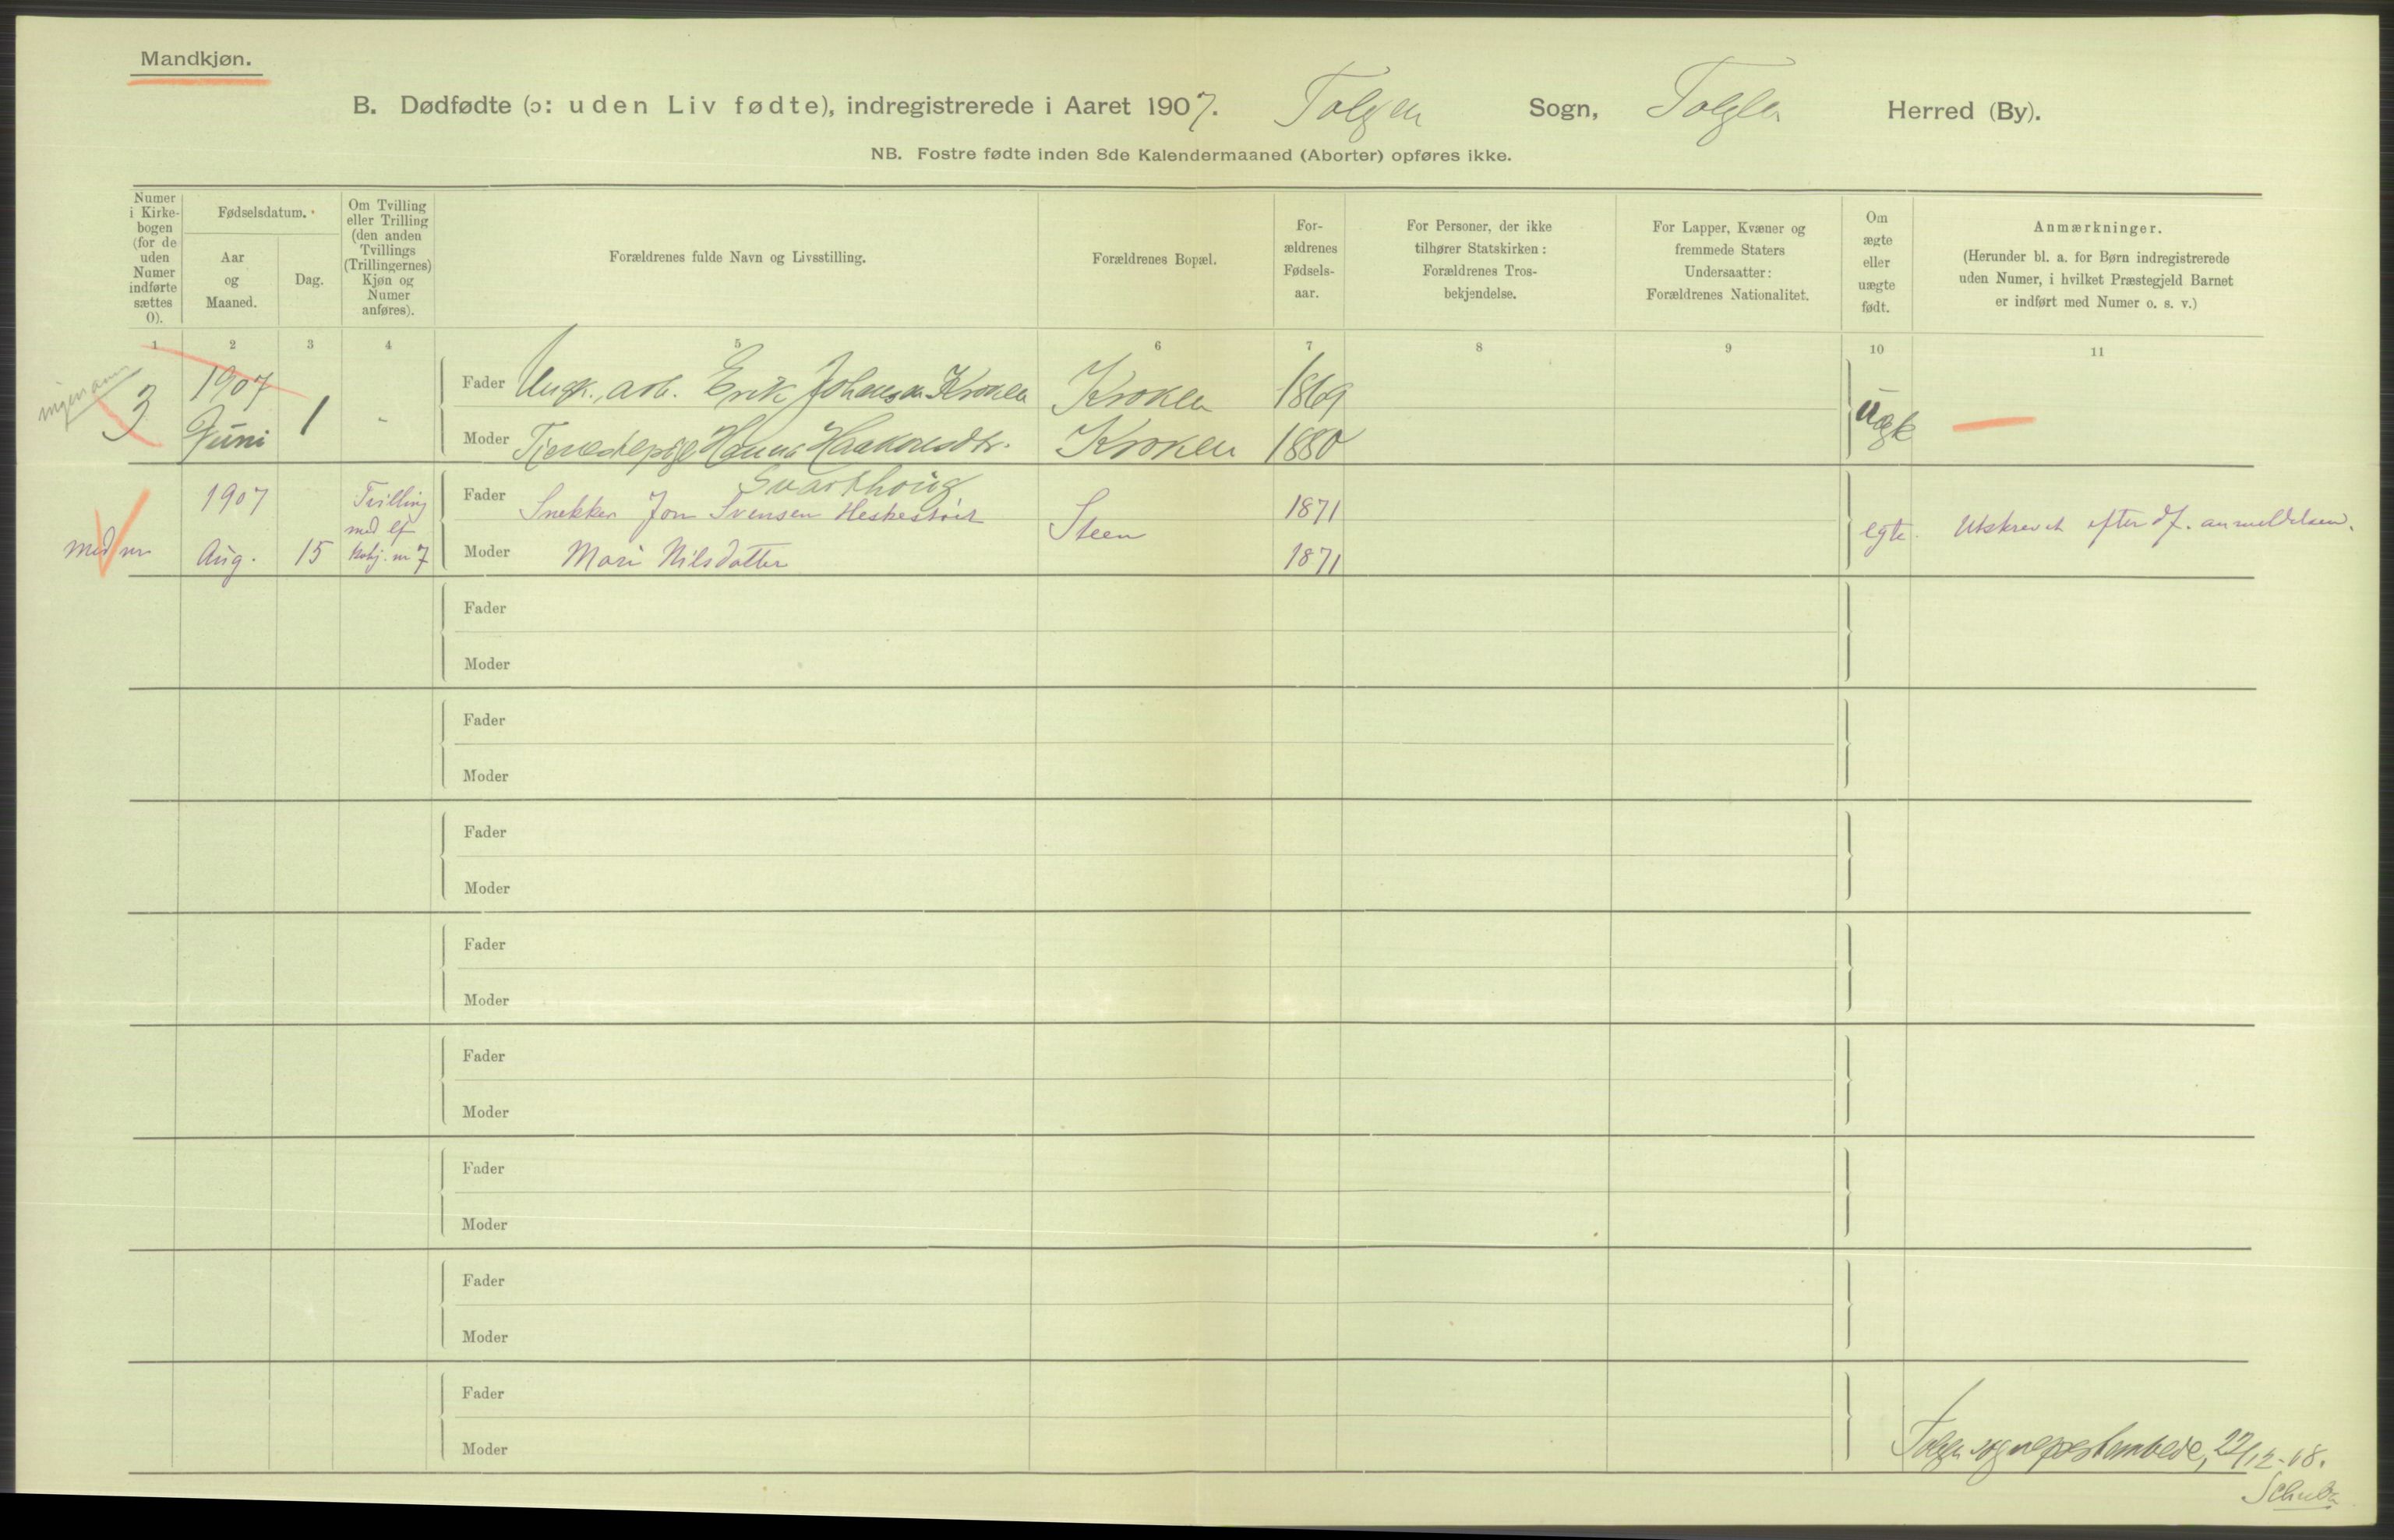 Mandkjøn.
B. Dødfødte (ɔ: uden Liv fødte), indregistrerede i Aaret 1907. Tolgen Sogn, Tolgen Herred (By).
NB. Fostre fødte inden 8de Kalendermaaned (Aborter) opføres ikke.
Numer
i Kirke-
bogen
(for de
uden
Numer
indførte
sættes
0).
Fødselsdatum.
Aar
og
Maaned.
Dag.
Om Tvilling
eller Trilling
(den anden
Tvillings
(Trillingernes)
Kjøn og
Numer
anføres).
Forældrenes fulde Navn og Livsstilling.
Forældrenes Bopæl.
For-
ældrenes
Fødsels-
aar.
For Personer, der ikke
tilhører Statskirken:
Forældrenes Tros-
bekjendelse.
For Lapper, Kvæner og
fremmede Staters
Undersaatter:
Forældrenes Nationalitet.
Om
ægte
eller
uægte
født.
Anmærkninger.
(Herunder bl. a. for Børn indregistrerede
uden Numer, i hvilket Præstegjeld Barnet
er indført med Numer o. s. v.)
1 2 3 4 5 6 7 8 9 10 11
3 1907 Juni 1 -
Fader Ungk. arb. Erik Johansen Kroken Kroken 1869
Moder Tjenestepige Hanna Haakansdtr. Kroken 1880
Svarthoug
Uægte
1907 Aug. 15
Tvilling
med lf
kobj. nr 7
Fader Snekker Jon Svensen Steen 1871
Moder Mari Nilsdatter 1871
egte. Utskrevet efter df. anmeldelsen.
Fader
Moder
Fader
Moder
Fader
Moder
Fader
Moder
Fader
Moder
Fader
Moder
Fader
Moder
Fader
Moder
Tolgen sogneprestembede, 22/12-08.